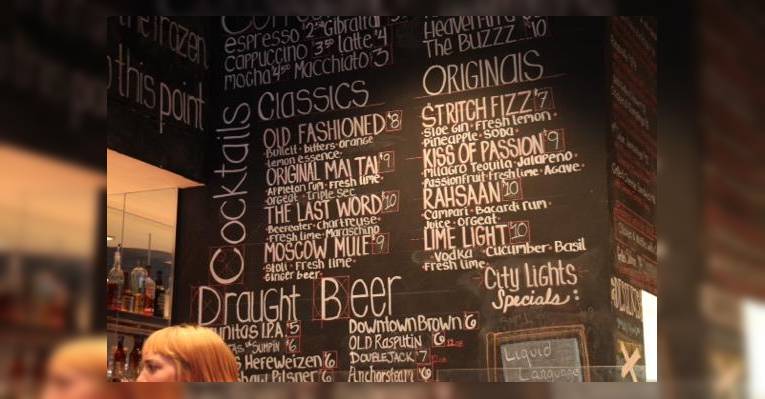 the frozen
this point
Coffee
espresso 2⁵⁰ Gibraltar
cappuccino 3⁵⁰ latte $4
mocha 4⁵⁰ Macchiato $3
The BUZZZ $10
Cocktails
Classics
OLD FASHIONED $8
Bulleit · bitters · orange
lemon essence
ORIGINAL MAI TAI $9
Appleton rum · Fresh lime
orgeat · Triple Sec
THE LAST WORD $10
Beefeater · Chartreuse
Fresh lime · Maraschino
MOSCOW MULE $9
Stoli · Fresh lime
Ginger beer
ORIGINALS
STRITCH FIZZ $7
Sloe Gin · Fresh lemon
Pineapple · Soda
KISS OF PASSION $9
Milagro Tequila · Jalapeno
Passionfruit · Fresh lime · Agave
RAHSAAN $10
Campari · Bacardi rum
Juice · Orgeat
LIME LIGHT $10
Vodka · Cucumber · Basil
Fresh lime
City Lights
Specials:
Liquid
Language
Draught Beer
unitas I.P.A. $5
Sumpin $6
Hefeweizen $6
Pilsner $6
Downtown Brown $6
OLD Rasputin $6
DOUBLE JACK $7
Anchorsteam $6